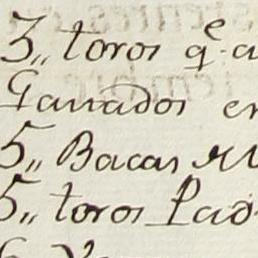 3,, toros q.e a
Ganados en
5,, Bacas
5,, toros Pad